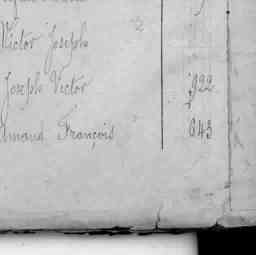 Victor Joseph
Joseph Victor 922
Amand François 643